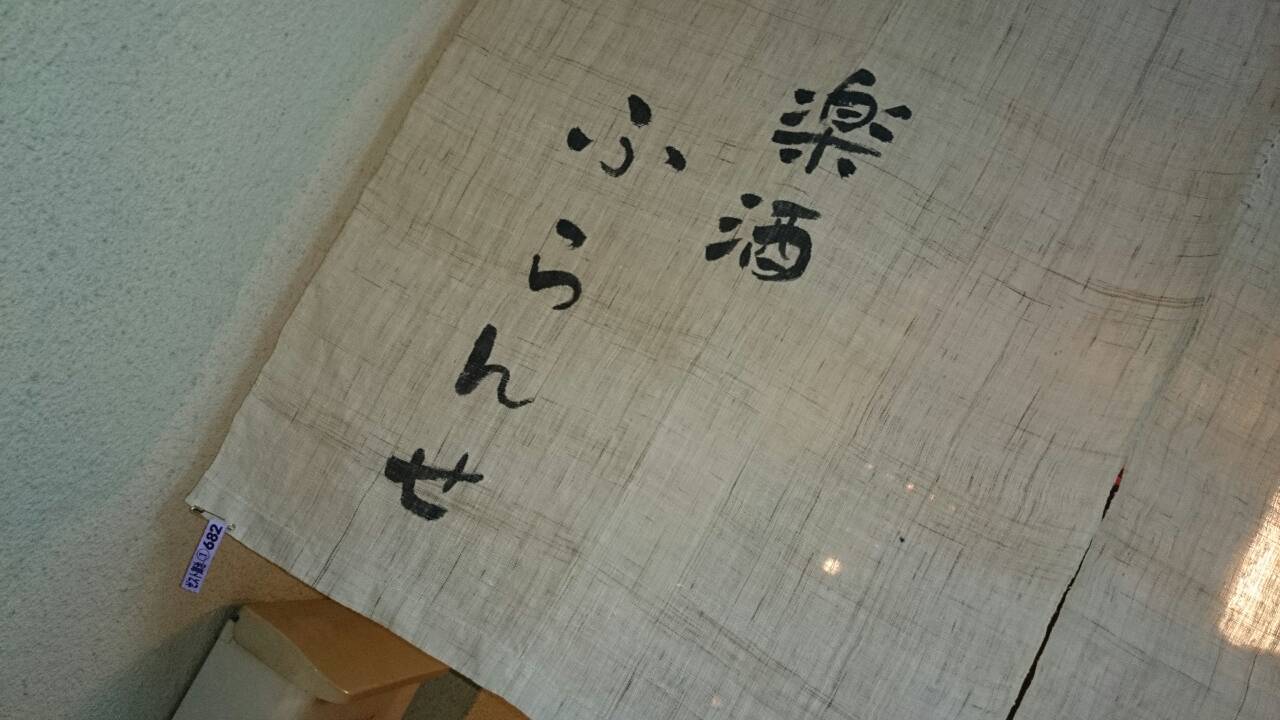 楽酒
ふらんせ
682